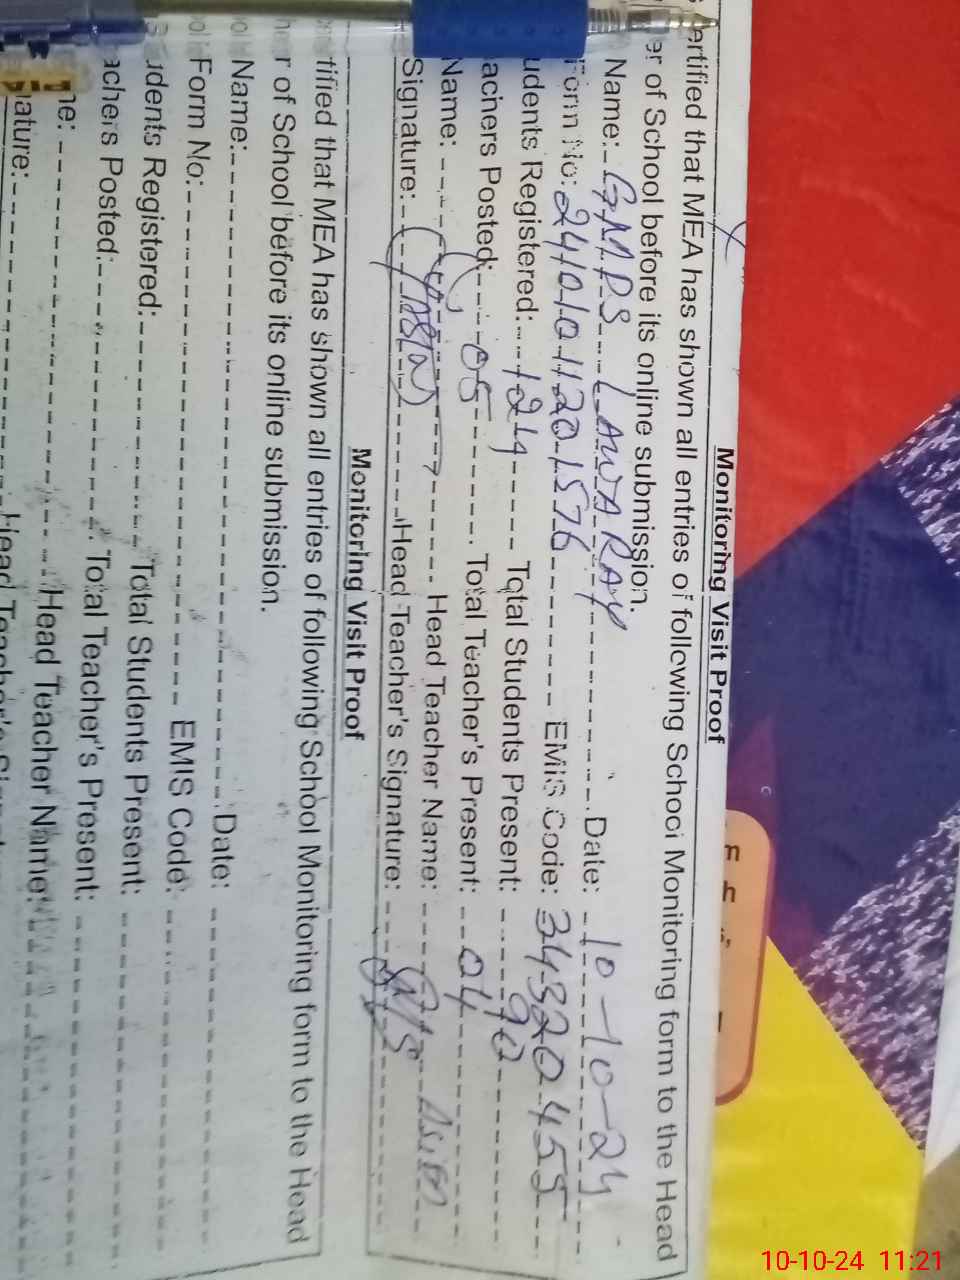 Monitoring Visit Proof
ertified that MEA has shown all entries of following School Monitoring form to the Head
er of School before its online submission.
Name: GMPS LAWARAY Date: 10-10-24
Form No: 24101011201576 EMIS Code: 34320455
udents Registered: 124 Total Students Present: 90
achers Posted: 05 Total Teacher's Present: 04
Name: Head Teacher Name: Asim
Signature: Head Teacher's Signature:
Monitoring Visit Proof
rtified that MEA has shown all entries of following School Monitoring form to the Head
r of School before its online submission.
Name: Date:
Form No: EMIS Code:
udents Registered: Total Students Present:
achers Posted: Total Teacher's Present:
ne: Head Teacher Name:
nature: Head Teacher's
10-10-24 11:21